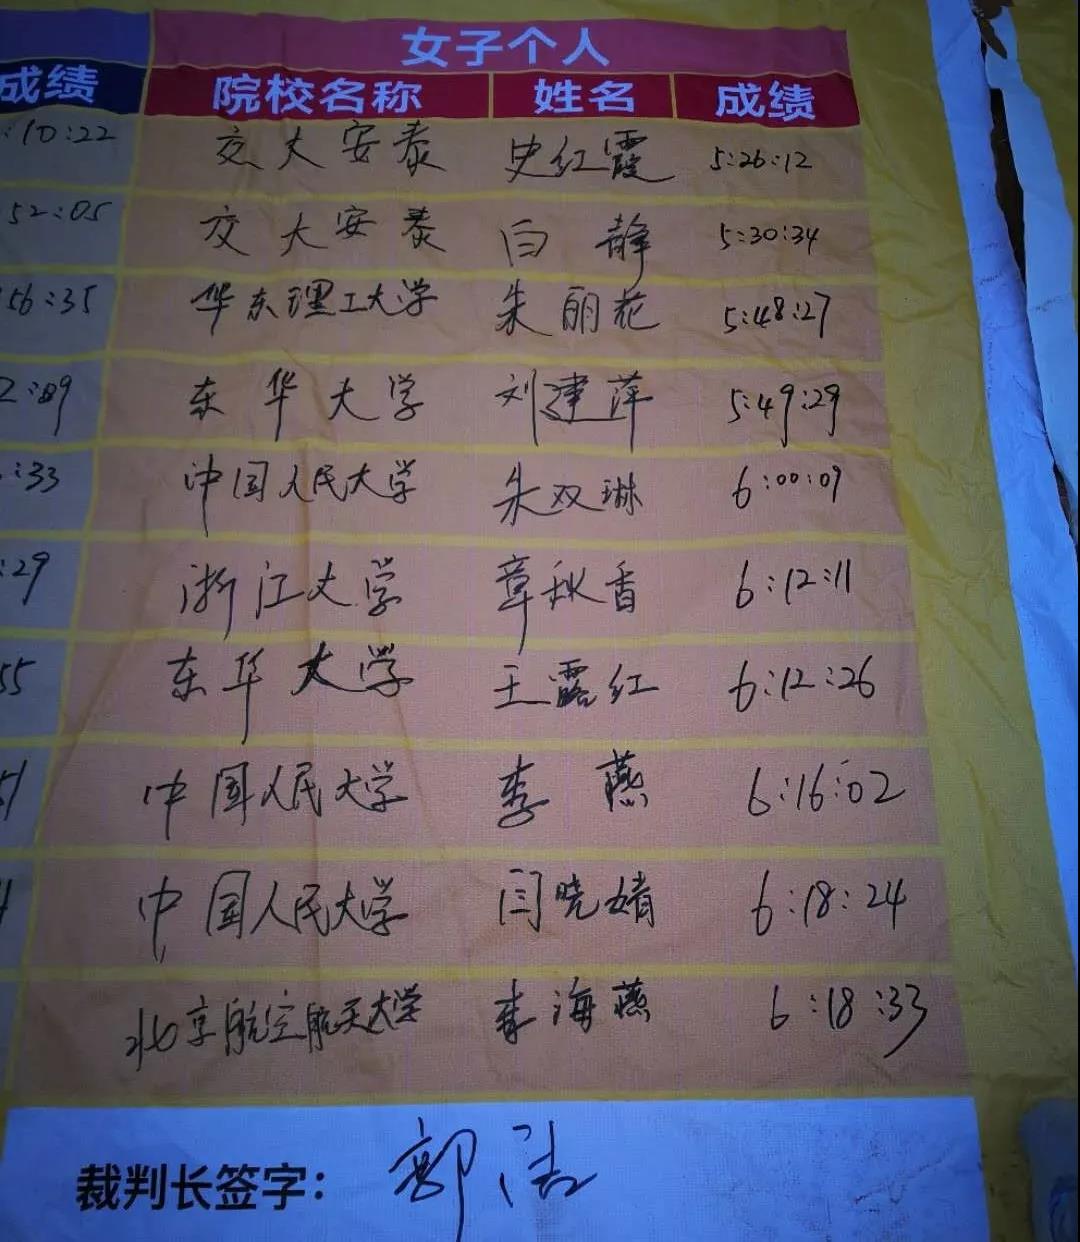 女子个人
成绩 院校名称 姓名 成绩
:10:22 交大安泰 史红霞 5:26:12
52:05 交大安泰 白静 5:30:34
56:35 华东理工大学 朱丽花 5:48:27
东华大学 刘建萍 5:49:29
:33 中国人民大学 朱双琳 6:00:09
:29 浙江大学 章秋香 6:12:11
55 东华大学 王露红 6:12:26
51 中国人民大学 李燕 6:16:02
中国人民大学 闫晓婧 6:18:24
北京航空航天大学 李海燕 6:18:33
裁判长签字: 郭洁